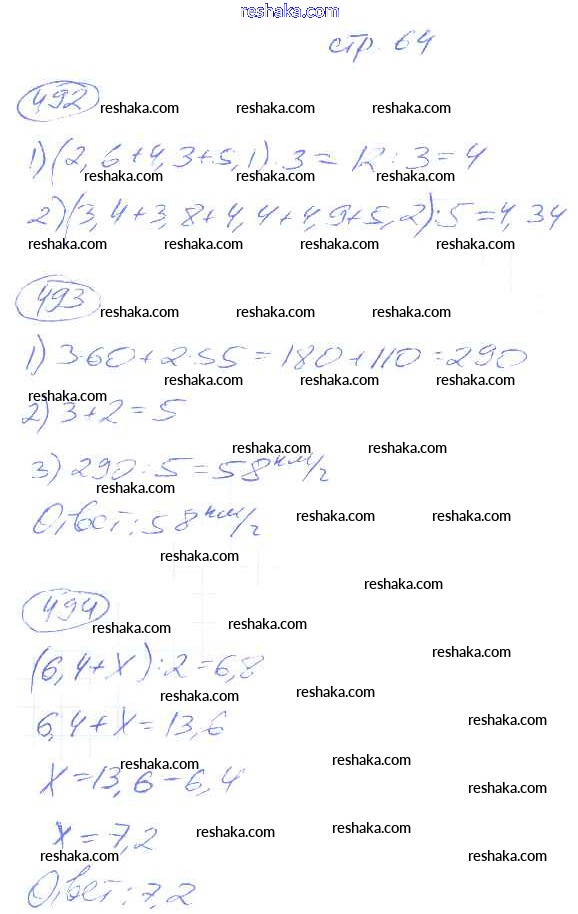 reshaka.com
стр. 64
492
reshaka.com reshaka.com reshaka.com
1) (2,6+4,3+5,1):3 = 12:3=4
reshaka.com reshaka.com reshaka.com
2) (3,4+3,8+4,4+4,9+5,2):5=4,34
reshaka.com reshaka.com reshaka.com reshaka.com
493
reshaka.com reshaka.com reshaka.com
1) 3·60+2·55=180+110=290
reshaka.com reshaka.com reshaka.com
reshaka.com
2) 3+2=5
reshaka.com reshaka.com
3) 290:5=58 км/г
reshaka.com
Ответ: 58 км/г
reshaka.com reshaka.com
reshaka.com
reshaka.com
494
reshaka.com reshaka.com
reshaka.com
(6,4+x):2=6,8
reshaka.com reshaka.com
6,4+x=13,6
reshaka.com
reshaka.com reshaka.com
x=13,6-6,4
reshaka.com
x=7,2
reshaka.com reshaka.com
reshaka.com reshaka.com
Ответ: 7,2